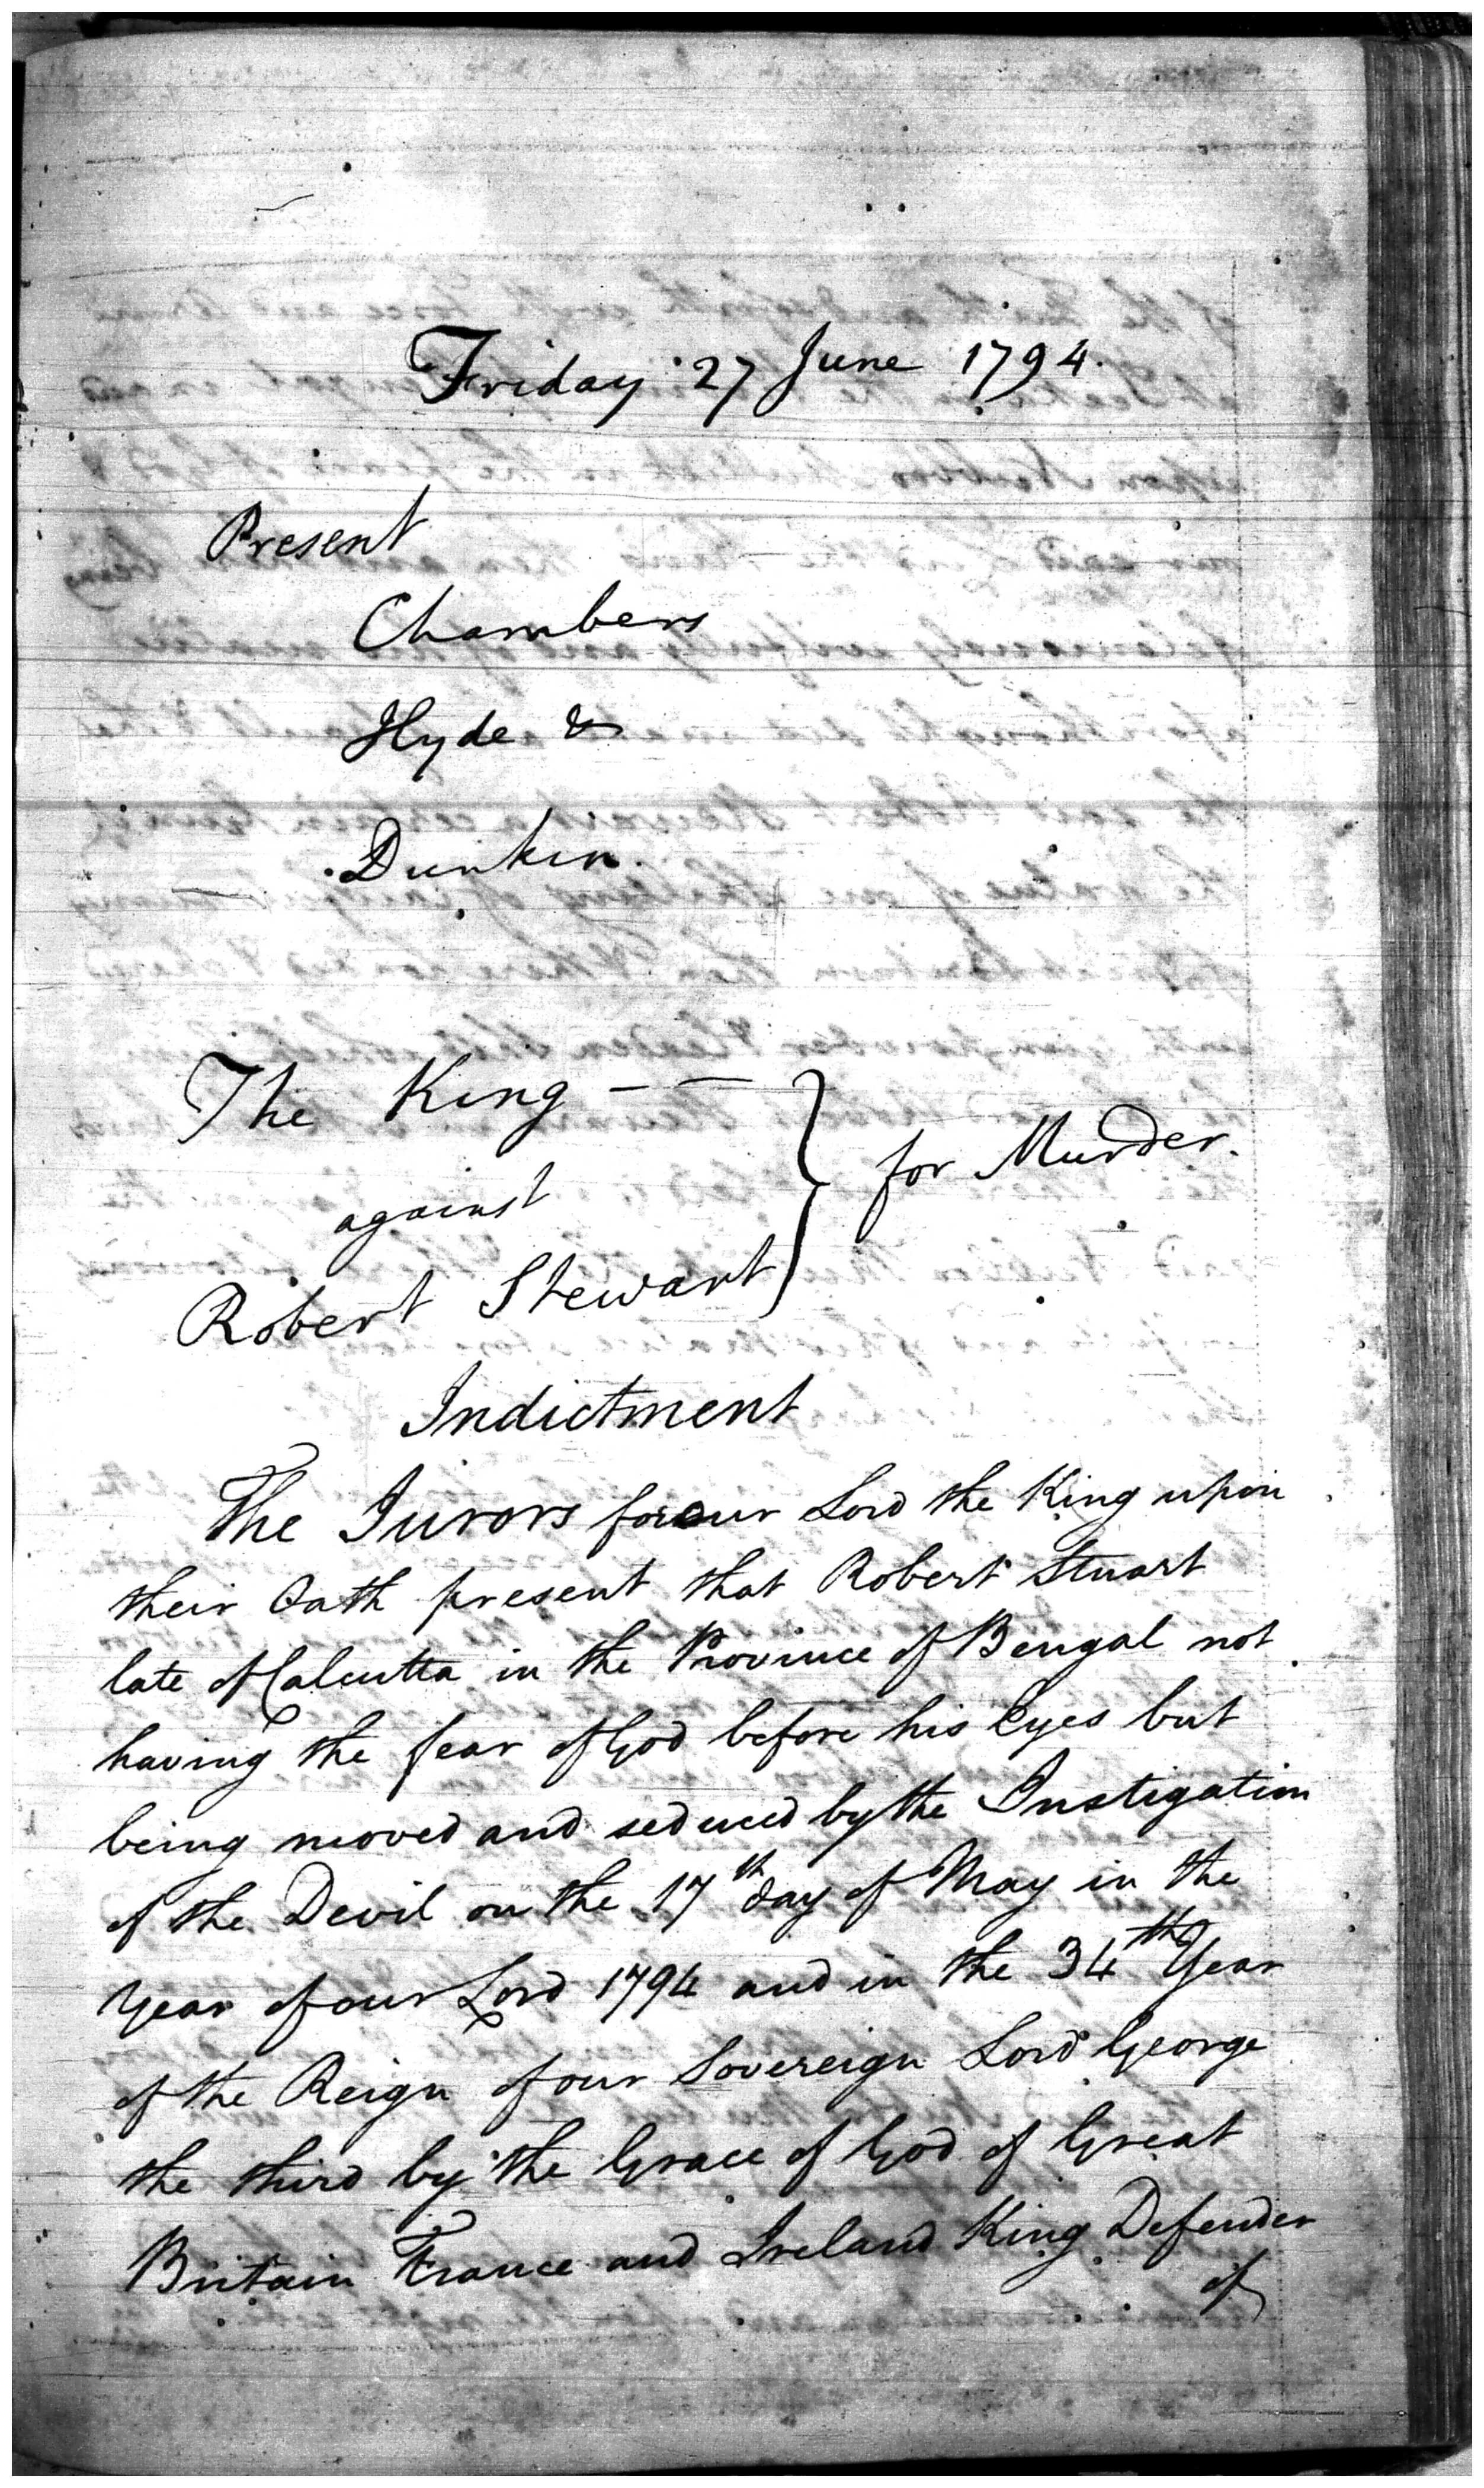 Friday 27 June 1794.
Present
Chambers
Hyde &
Dunkin.
The King — —
against
Robert Stewart
} for Murder.
Indictment
The Jurors for our Lord the King upon
their Oath present that Robert Stuart
late of Calcutta in the Province of Bengal not
having the fear of God before his Eyes but
being moved and seduced by the Instigation
of the Devil on the 17th day of May in the
Year of our Lord 1794 and in the 34th Year
of the Reign of our Sovereign Lord George
the third by the Grace of God of Great
Britain France and Ireland King Defender
of